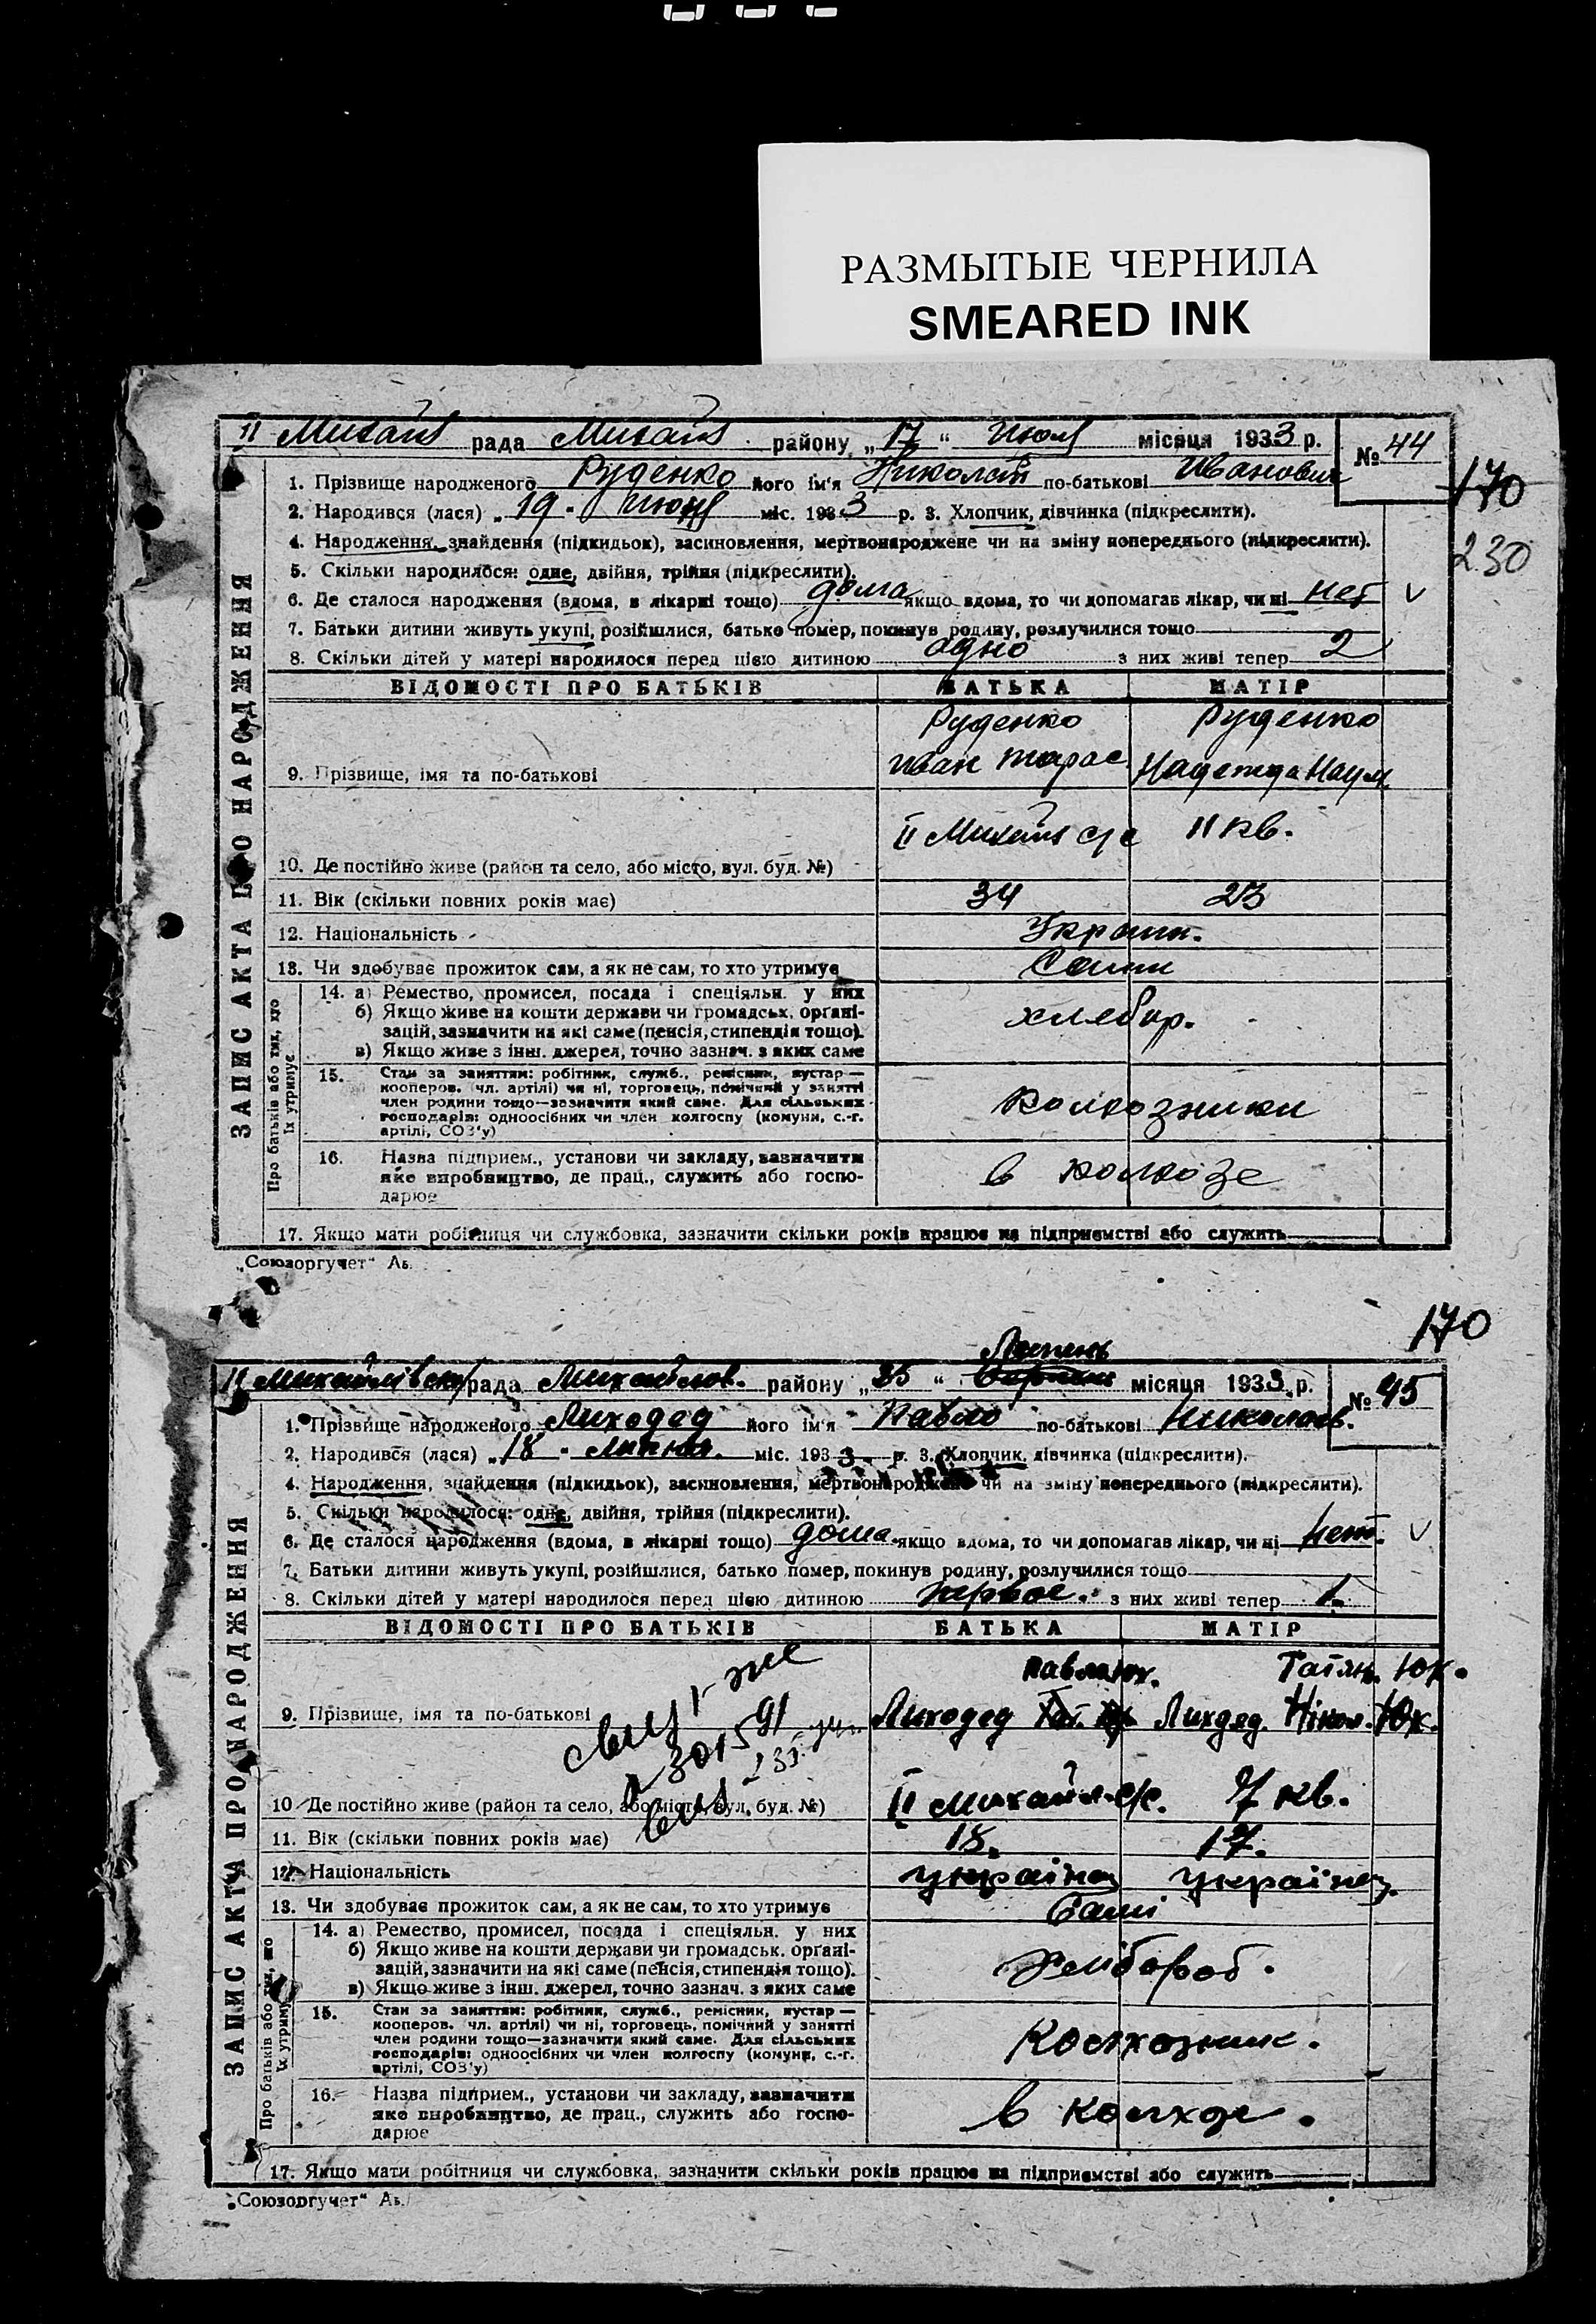 РАЗМЫТЫЕ ЧЕРНИЛА
SMEARED INK
II Михайл рада Михайл. району „17“ Июля місяця 1933 р. № 44
170
1. Прізвище народженого Руденко його ім'я Николай по-батькові Иванович
2. Народився (лася) „19." Июня міс. 1933 р. 3. Хлопчик, дівчинка (підкреслити).
4. Народження, знайдення (підкидьок), засиновлення, мертвонароджене чи на зміну попереднього (підкреслити).
230
5. Скільки народилося: одне, двійня, трійня (підкреслити).
6. Де сталося народження (вдома, в лікарні тощо) дома якщо вдома, то чи допомагав лікар, чи ні нет
7. Батьки дитини живуть укупі, розійшлися, батько помер, покинув родину, розлучилися тощо
8. Скільки дітей у матері народилося перед цією дитиною одно з них живі тепер 2
ЗАПИС АКТА ПРО НАРОДЖЕННЯ
ВІДОМОСТІ ПРО БАТЬКІВ БАТЬКА МАТІР
Руденко Руденко
9. Прізвище, імя та по-батькові Иван Тарас Надежда Наум.
10. Де постійно живе (район та село, або місто, вул. буд. №) II Михайл с/с 11 кв.
11. Вік (скільки повних років має) 34 23
12. Національність Украин.
13. Чи здобуває прожиток сам, а як не сам, то хто утримує Сами
Про батьків або тих, хто їх утримує
14. а) Ремество, промисел, посада і спеціяльн. у них
б) Якщо живе на кошти держави чи громадськ. органі-
зацій, зазначити на які саме (пенсія, стипендія тощо).
в) Якщо живе з інш. джерел, точно зазнач. з яких саме
хлебор.
15. Стан за заняттям: робітник, служб., ремісник, кустар —
кооперов. чл. артілі) чи ні, торговець, помічний у занятті
член родини тощо—зазначити який саме. Для сільських
господарів: одноосібних чи член колгоспу (комуни, с.-г.
артілі, СОЗ'у)
Колхозники
16. Назва підприєм., установи чи закладу, зазначити
яке виробництво, де прац., служить або госпо-
дарює
в колхозе
17. Якщо мати робітниця чи службовка, зазначити скільки років працює на підприємстві або служить
„Союзоргучет“
170
Липень
II Михайлівськ рада Михайлов. району „25“ місяця 1933 р. № 45
1. Прізвище народженого Лиходед його ім'я Павло по-батькові Николаев.
2. Народився (лася) „18" Липня. міс. 1933 р. 3. Хлопчик, дівчинка (підкреслити).
4. Народження, знайдення (підкидьок), засиновлення, мертвонароджене чи на зміну попереднього (підкреслити).
5. Скільки народилося: одне, двійня, трійня (підкреслити).
6. Де сталося народження (вдома, в лікарні тощо) дома. якщо вдома, то чи допомагав лікар, чи ні нет.
7. Батьки дитини живуть укупі, розійшлися, батько помер, покинув родину, розлучилися тощо
8. Скільки дітей у матері народилося перед цією дитиною первое. з них живі тепер 1.
ЗАПИС АКТА ПРО НАРОДЖЕННЯ
ВІДОМОСТІ ПРО БАТЬКІВ БАТЬКА МАТІР
Татян. Юх.
9. Прізвище, імя та по-батькові Лиходед Лихдед.
10. Де постійно живе (район та село, або місто, вул. буд. №) II Михайл. с/с. 7 кв.
11. Вік (скільки повних років має) 18. 17.
12. Національність українец українец.
13. Чи здобуває прожиток сам, а як не сам, то хто утримує Самі
Про батьків або тих, що їх утримує
14. а) Ремество, промисел, посада і спеціяльн. у них
б) Якщо живе на кошти держави чи громадськ. органі-
зацій, зазначити на які саме (пенсія, стипендія тощо).
в) Якщо живе з інш. джерел, точно зазнач. з яких саме
Хлібороб.
15. Стан за заняттям: робітник, служб., ремісник, кустар —
кооперов. чл. артілі) чи ні, торговець, помічний у занятті
член родини тощо—зазначити який саме. Для сільських
господарів: одноосібних чи член колгоспу (комуни, с.-г.
артілі, СОЗ'у)
Колхозник.
16. Назва підприєм., установи чи закладу, зазначити
яке виробництво, де прац., служить або госпо-
дарює
в колхозе.
17. Якщо мати робітниця чи службовка, зазначити скільки років працює на підприємстві або служить
„Союзоргучет“